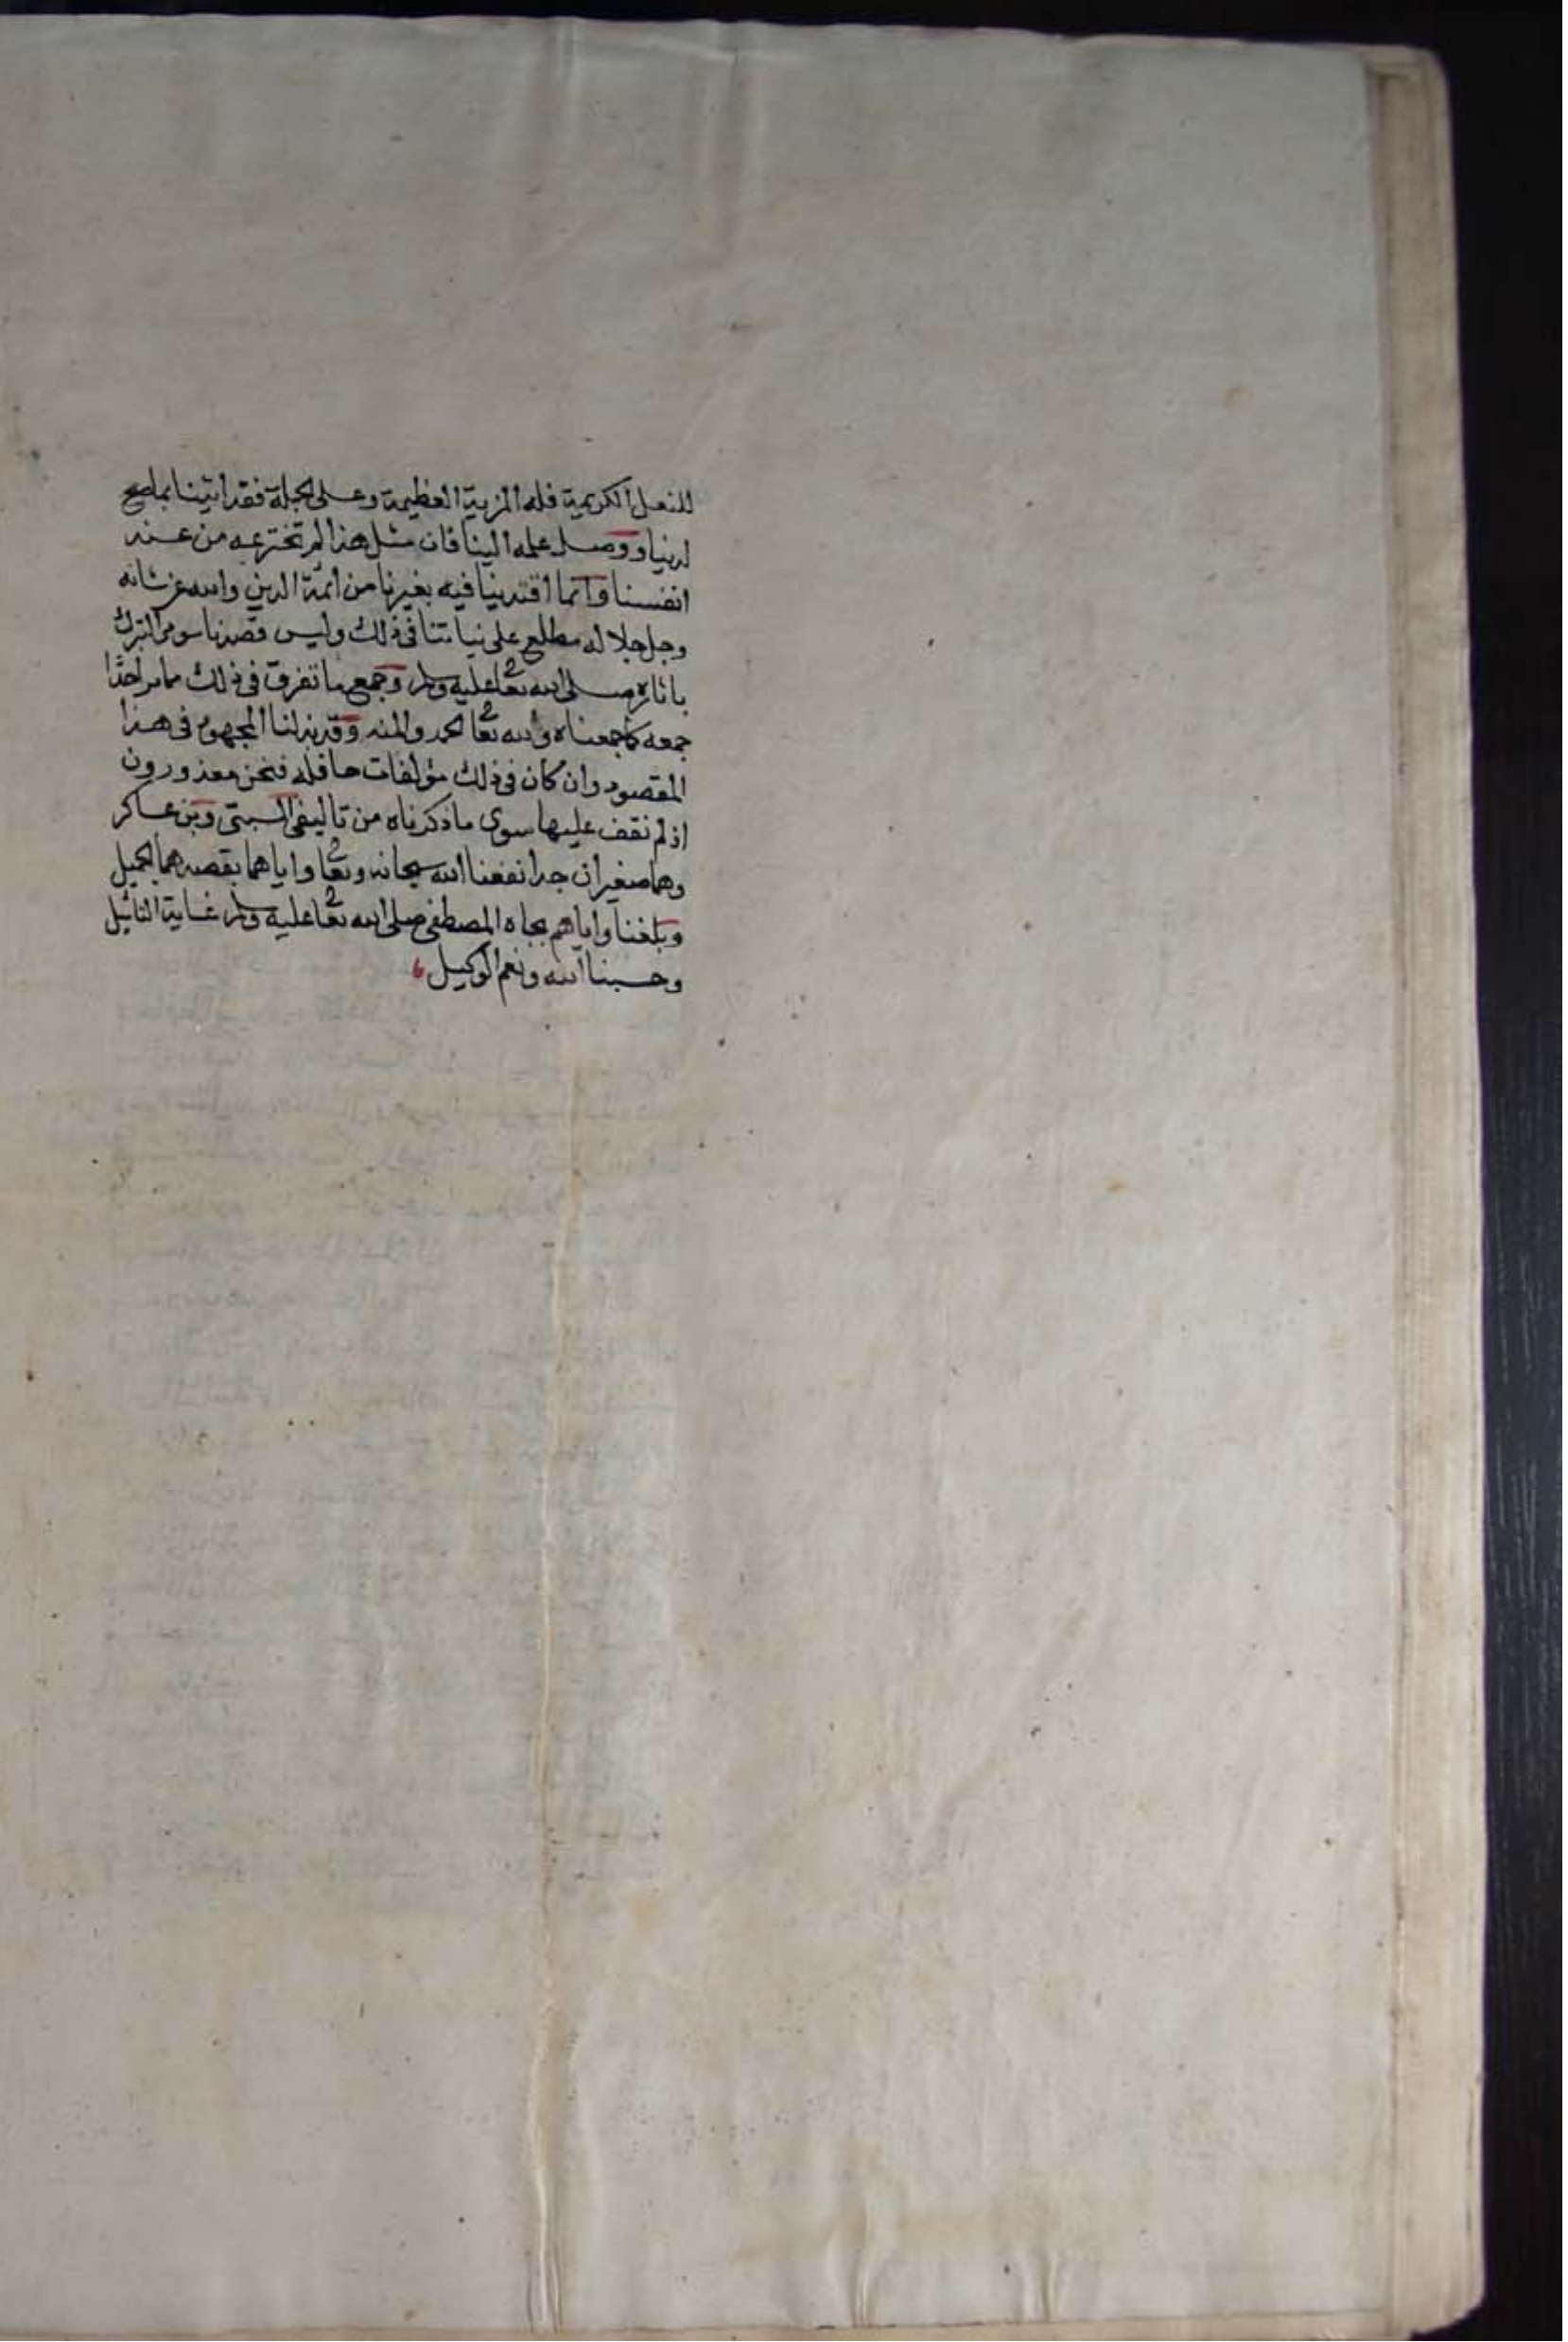 للنعل الكريمة فله المزية العظيمة وعلى الجملة فقد اتينا بما صح
لدينا ووصل علمه الينا فان مثل هذا لم نخترعه من عند
انفسنا وانما اقتدينا فيه بغيرنا من ائمة الدين والله عز شانه
وجل جلاله مطلع على نياتنا في ذلك وليس قصدنا سوى التبرك
باثاره صلى الله تعا عليه وسلم وجمع ما تفرق في ذلك مما لم ار احدا
جمعه كما جمعناه ولله تعا الحمد والمنه وقد بذلنا المجهود في هذا
المقصود وان كان في ذلك مؤلفات حافله فنحن معذورون
اذ لم نقف عليها سوى ما ذكرناه من تاليفى السبتى وبن عساكر
وهما صغيران جدا نفعنا الله سبحانه وتعا واياهما بقصدهما الجميل
وبلغنا واياهم بجاه المصطفى صلى الله تعا عليه وسلم غاية التاميل
وحسبنا الله ونعم الوكيل